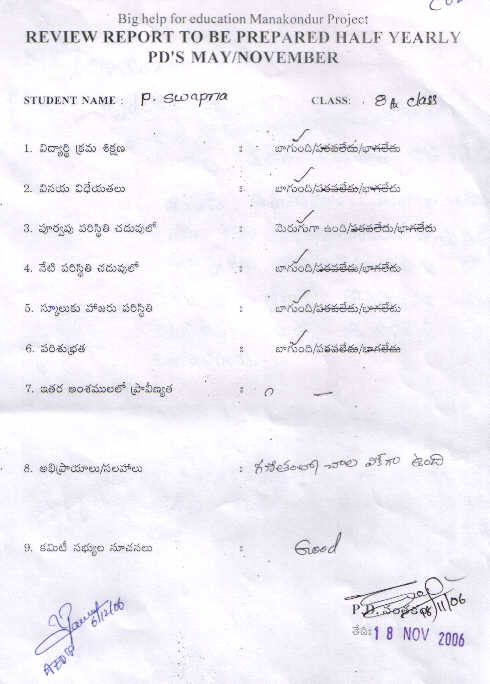 Big help for education Manakondur Project
REVIEW REPORT TO BE PREPARED HALF YEARLY
PD'S MAY/NOVEMBER
STUDENT NAME : P. Swapna CLASS: 8th class
1. విద్యార్థి క్రమ శిక్షణ : బాగుంది/పరవలేదు/బాగలేదు
2. వినయ విధేయతలు : బాగుంది/పరవలేదు/బాగలేదు
3. పూర్వపు పరిస్థితి చదువులో : మెరుగుగా ఉంది/పరవలేదు/బాగలేదు
4. నేటి పరిస్థితి చదువులో : బాగుంది/పరవలేదు/బాగలేదు
5. స్కూలుకు హాజరు పరిస్థితి : బాగుంది/పరవలేదు/బాగలేదు
6. పరిశుభ్రత : బాగుంది/పరవలేదు/బాగలేదు
7. ఇతర అంశములలో ప్రావీణ్యత : —
8. అభిప్రాయాలు/సలహాలు : గణితంలో చాల వీక్‌గా ఉంది
9. కమిటీ సభ్యుల సూచనలు : Good
P.D. సంతకం 18/11/06
తేది: 18 NOV 2006
6/12/06